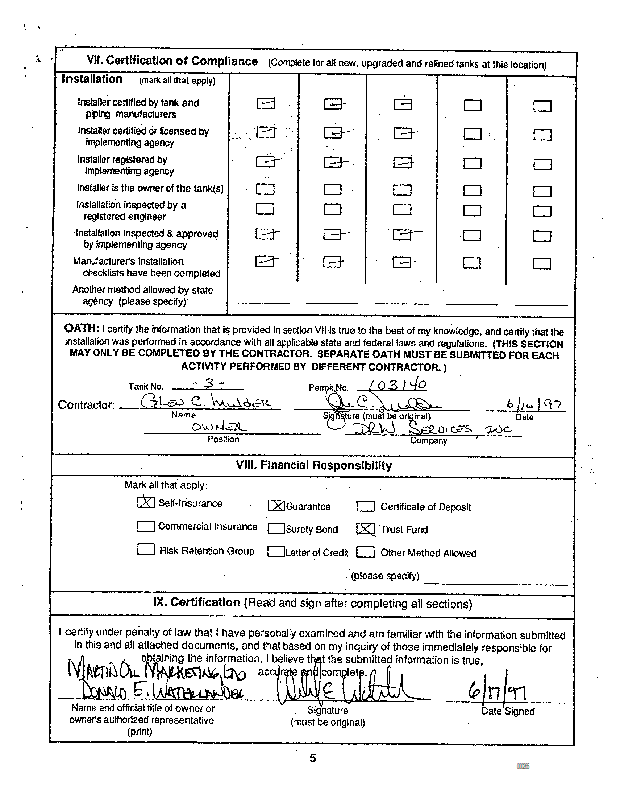 VII. Certification of Compliance (Complete for all new, upgraded and relined tanks at this location)
Installation (mark all that apply)
Installer certified by tank and
piping manufacturers
Installer certified or licensed by
implementing agency
Installer registered by
implementing agency
Installer is the owner of the tank(s)
Installation inspected by a
registered engineer
Installation inspected & approved
by implementing agency
Manufacturer's installation
checklists have been completed
Another method allowed by state
agency (please specify)
OATH: I certify the information that is provided in section VII is true to the best of my knowledge, and certify that the
installation was performed in accordance with all applicable state and federal laws and regulations. (THIS SECTION
MAY ONLY BE COMPLETED BY THE CONTRACTOR. SEPARATE OATH MUST BE SUBMITTED FOR EACH
ACTIVITY PERFORMED BY DIFFERENT CONTRACTOR.)
Tank No. -3- Permit No. 103140
Contractor: 6/16/97
Name Signature (must be original) Date
OWNER SERVICES, INC
Position Company
VIII. Financial Responsibility
Mark all that apply:
Self-Insurance Guarantee Certificate of Deposit
Commercial Insurance Surety Bond Trust Fund
Risk Retention Group Letter of Credit Other Method Allowed
(please specify)
IX. Certification (Read and sign after completing all sections)
I certify under penalty of law that I have personally examined and am familiar with the information submitted
in this and all attached documents, and that based on my inquiry of those immediately responsible for
obtaining the information, I believe that the submitted information is true,
accurate and complete.
MARTIN OIL MARKETING, LTD
DONALD E. 6/17/97
Name and official title of owner or Signature Date Signed
owner's authorized representative (must be original)
(print)
5